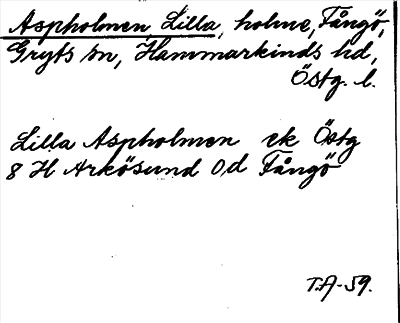 Aspholmen, Lilla, holme, Fångö,
Gryts sn, Hammarkinds hd,
Östg. l.
Lilla Aspholmen ek Östg
8 H Arkösund Od Fångö
T.A-59.